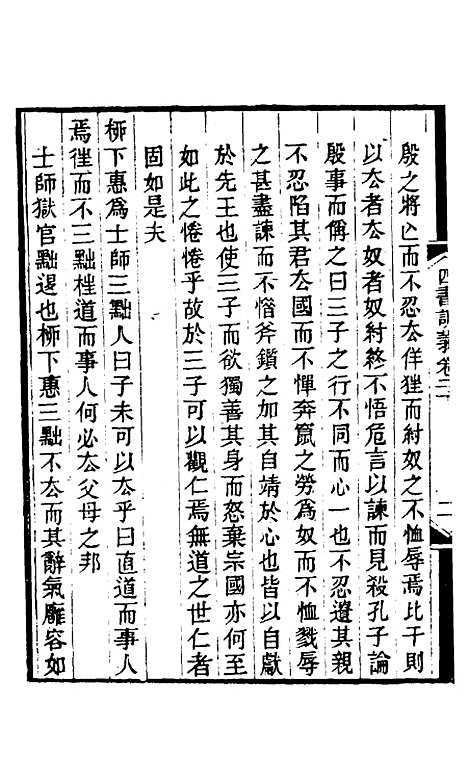 四書訓義卷二十
二
殷之將亾而不忍厺佯狂而紂奴之不恤辱焉比干則
以厺者厺奴者奴紂終不悟危言以諫而見殺孔子論
殷事而偁之曰三子之行不同而心一也不忍遺其親
不忍陷其君厺國而不憚奔竄之勞爲奴而不恤戮辱
之甚盡諫而不懵斧鑕之加其自靖於心也皆以自獻
於先王也使三子而欲獨善其身而怒棄宗國亦何至
如此之惓惓乎故於三子可以觀仁焉無道之世仁者
固如是夫
桺下惠爲士師三黜人曰子未可以厺乎曰直道而事人
焉徃而不三黜枉道而事人何必厺父母之邦
士師獄官黜退也桺下惠三黜不厺而其辭氣雝容如